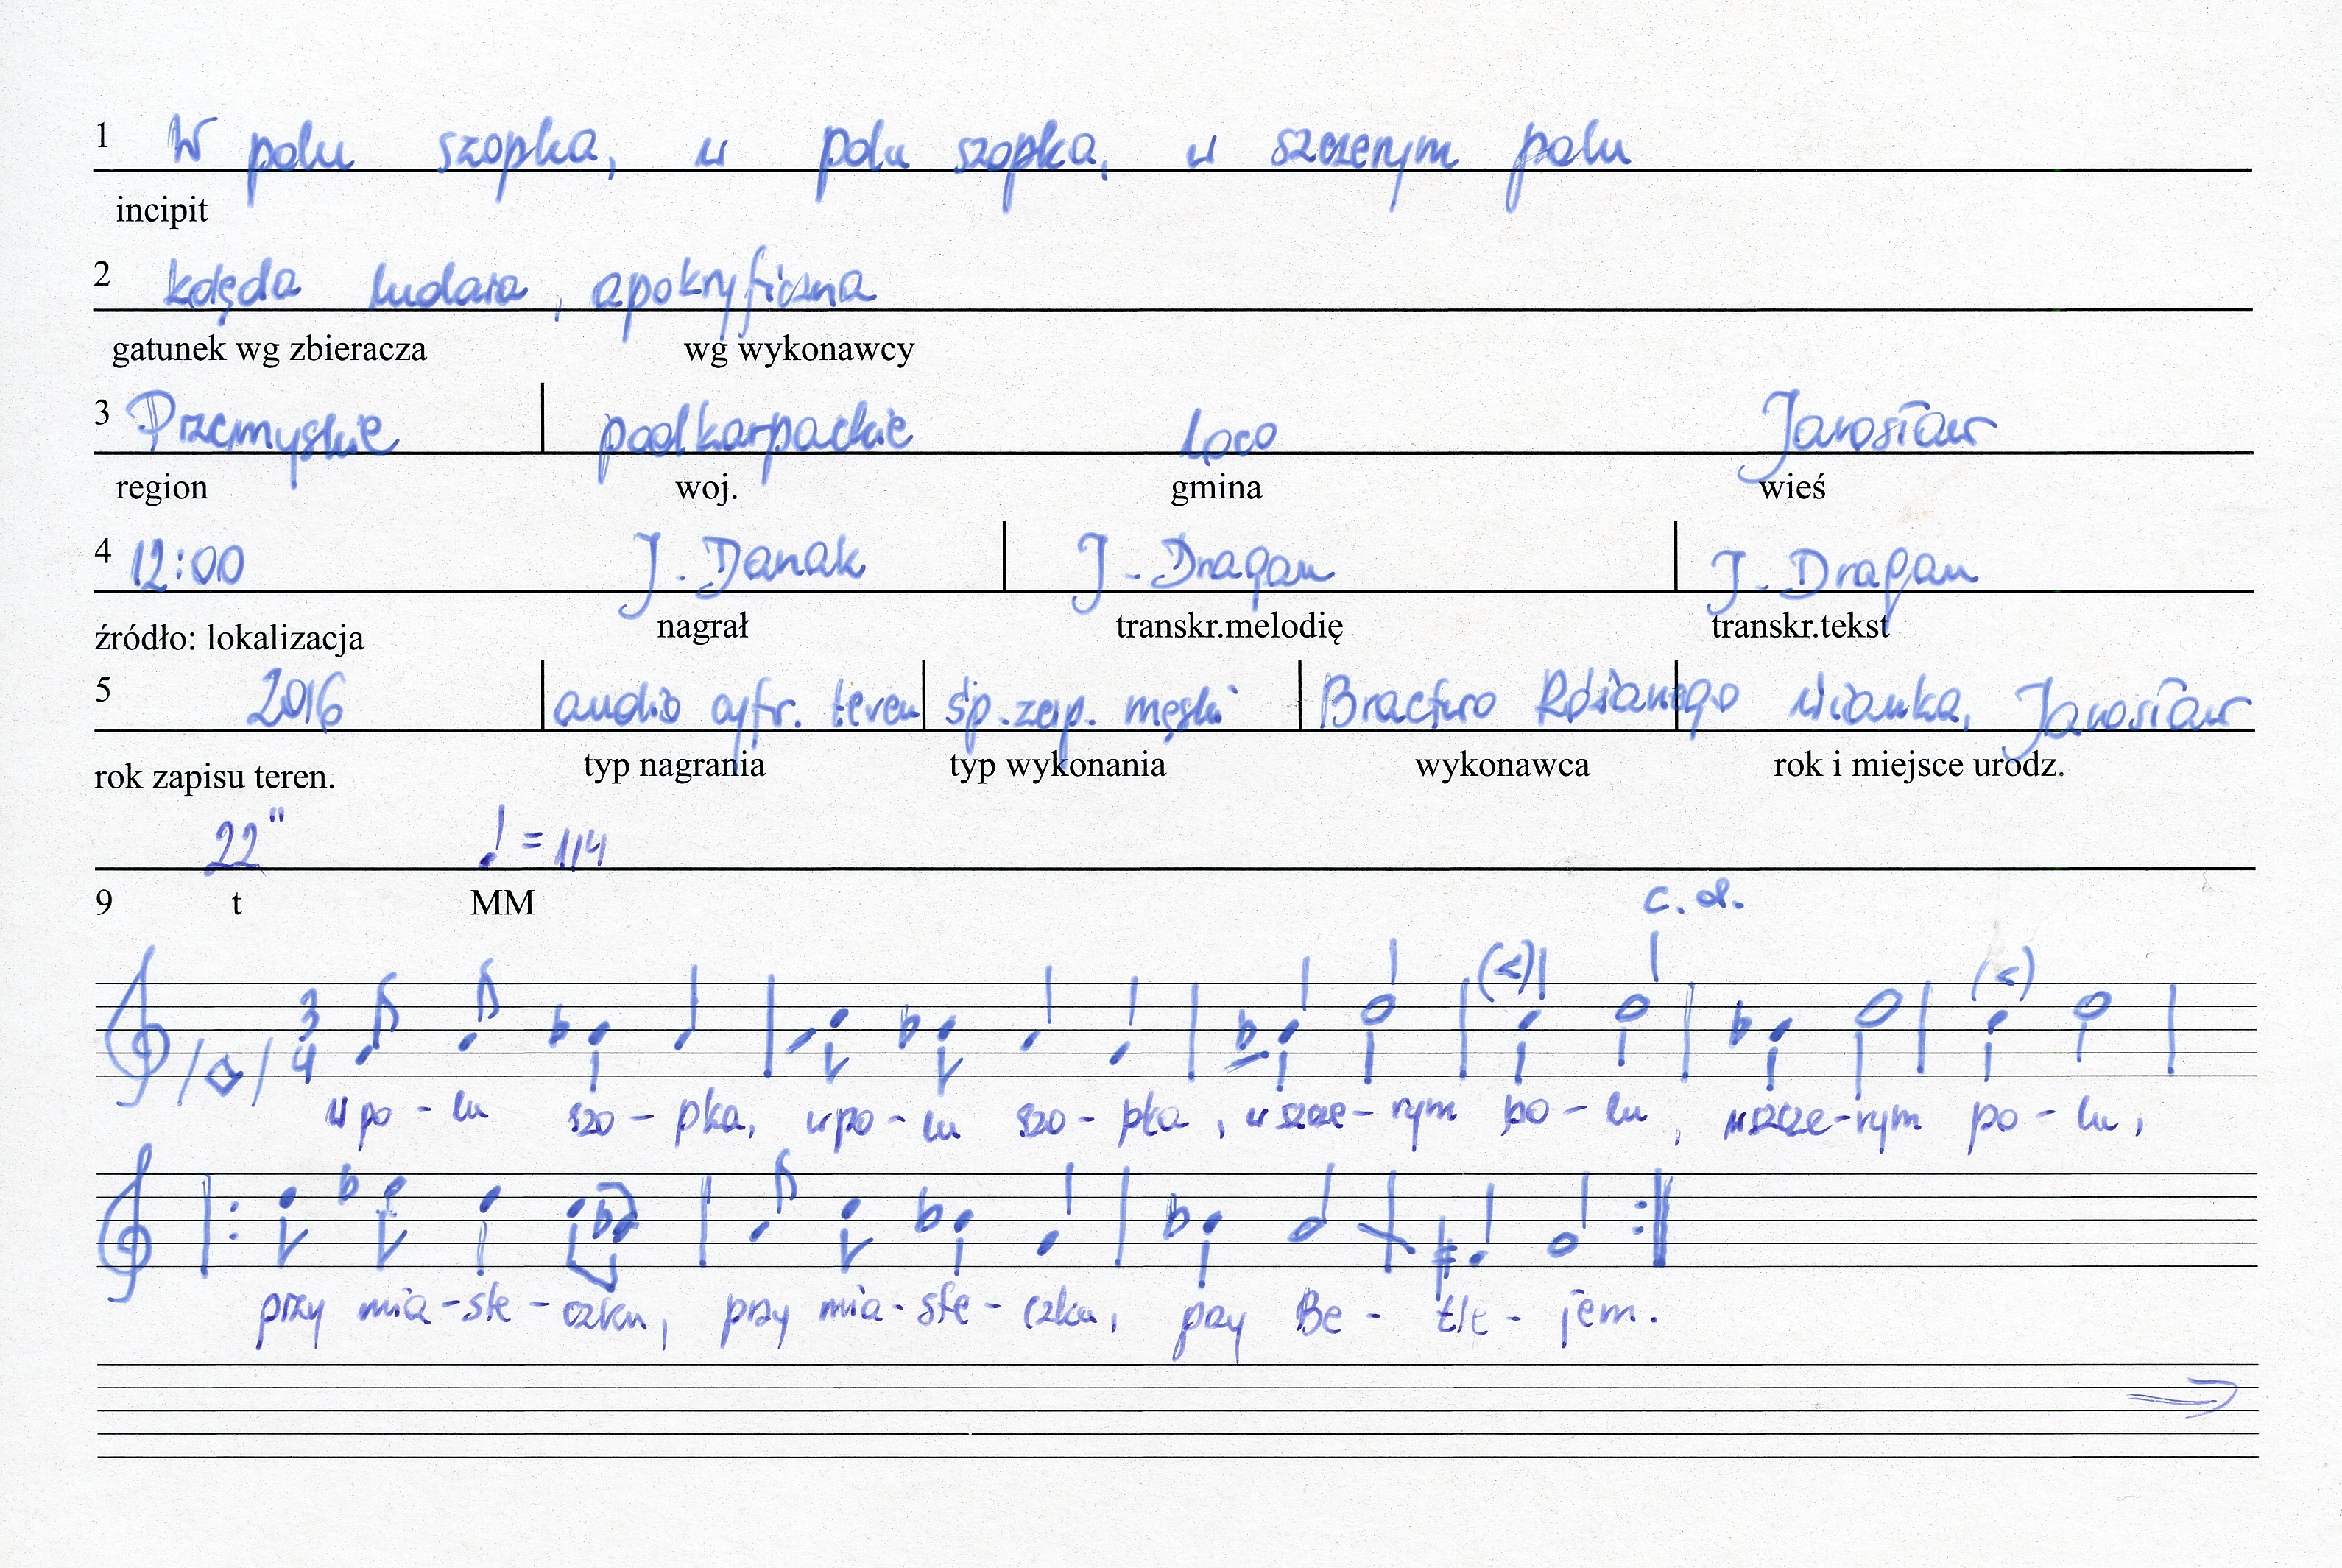 1 W polu szopka, w polu szopka, w szczerym polu
incipit
2 kolęda ludowa, apokryficzna
gatunek wg zbieracza wg wykonawcy
3 Przemyskie podkarpackie Loco Jarosław
region woj. gmina wieś
4 12:00 J. Danak J. Dragan J. Dragan
źródło: lokalizacja nagrał transkr.melodię transkr.tekst
5 2016 audio cyfr. teren śp. zesp. męski Bractwo Różanego Wianka, Jarosław
rok zapisu teren. typ nagrania typ wykonania wykonawca rok i miejsce urodz.
22" ♩ = 114
9 t MM
c. d.
3 4
w po - lu szo - pka, w po - lu szo - pka, w szcze - rym po - lu, w szcze - rym po - lu,
przy mia - ste - czku, przy mia - ste - czku, przy Be - tle - jem.